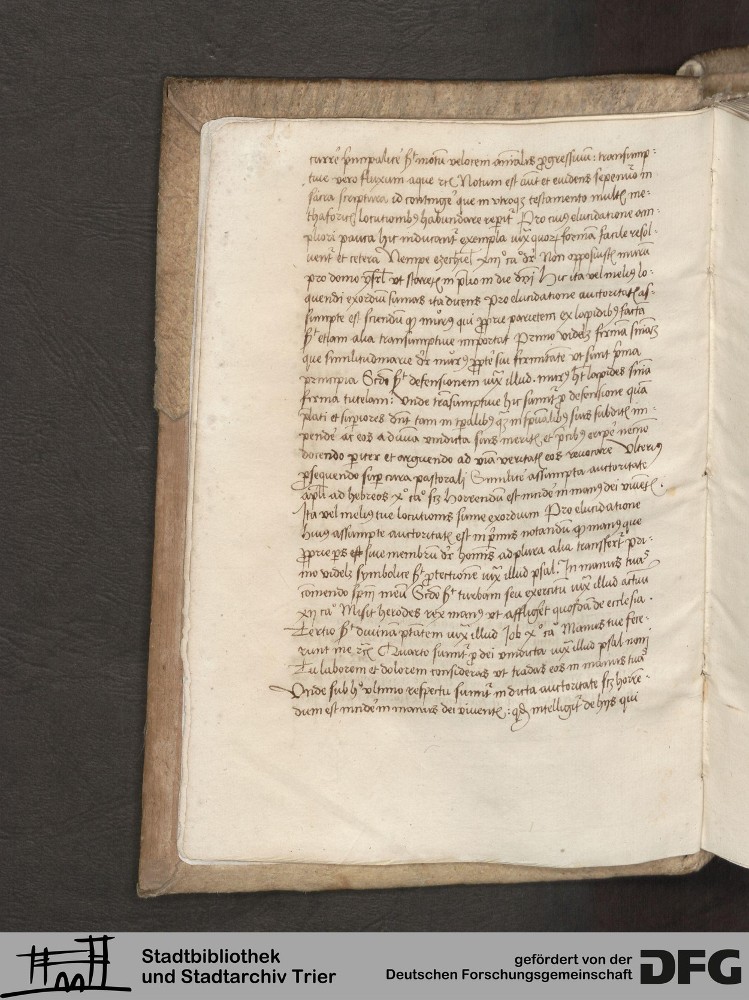 curre principalite motu velocem animalis progressium: transump-
tiue vero fluxum aque Notum est aut et euidens sepenuo in
sacra scriptura id contingere que in vtroqz testamento multis me-
thaforicis locutionibz habundare repit Pro cuiz elucidatione am-
pliori pauca hic inducant exempla iux quorz formam facile resol-
uent et cetera Nempe ezechiel xiij ca dr Non opposuistis muru
pro domo isrl vt staretis in plio in die dni Hic ita vel meliz lo-
quendi exordiu sumas ita dicens Pro elucidatione auctoritatis as-
sumpte est sciendu qz murz qui pprie parietem ex lapidibz facta
etiam alia transsumptiue importat Primo videlz
que similitudinarie dr murz ppter sui firmitate vt sunt prima
principia Scdo defensionem iux illud. murz lapides
firma tutelam: Vnde transumptiue hic sumit p defensione qua
plati et supiores dnt tam in tpalibz qz in spualibz suis subditis im-
pende ac eos a diuina vindicta suis meritis et pcibz eripe necno
docendo pariter et arguendo ad via veritatis eos reuocare Vlteriz
psequendo sup cura pastorali Similit assumpta auctoritate
apli ad hebreos x ca scz Horrendum est incide in manz dei viuentis.
Ita vel meliz tue locutionis sume exordium Pro elucidatione
huiz assumpte auctoritatis est in primis notandu qz manz que
pprie ps est siue membru dr hominis ad plura alia transfert pri-
mo videlz symbolice ptectione iux illud psal. In manus tuas
comendo spm meu Scdo turbam seu exercitu iux illud actuu
xij ca Misit herodes rex manz vt affliget quosdam de ecclesia.
Tertio diuinam ptatem iux illud Job x ca Manus tue fece-
runt me Quarto sumit p dei vindicta iux illud psal noni
Tu laborem et dolorem consideras vt tradas eos in manus tuas
Vnde sub vltimo respectu sumit in dicta auctoritate scz horre-
dum est incide in manus dei viuentis: qd intelligit de hijs qui
Stadtbibliothek
und Stadtarchiv Trier
gefördert von der
Deutschen Forschungsgemeinschaft
DFG